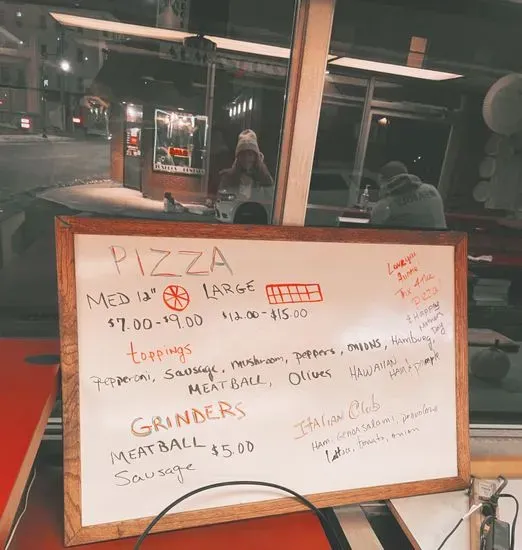 PIZZA
MED 12" LARGE
$7.00-$9.00 $12.00-$15.00
toppings
pepperoni, sausage, mushroom, peppers, ONIONS, Hamburg,
MEATBALL, Olives HAWAIIAN
HAM & pineapple
GRINDERS
MEATBALL $5.00
Sausage
ITALIAN Club
Ham, Genoa salami, provolone
lettuce, tomato, onion
Pizza
& Happy
Day